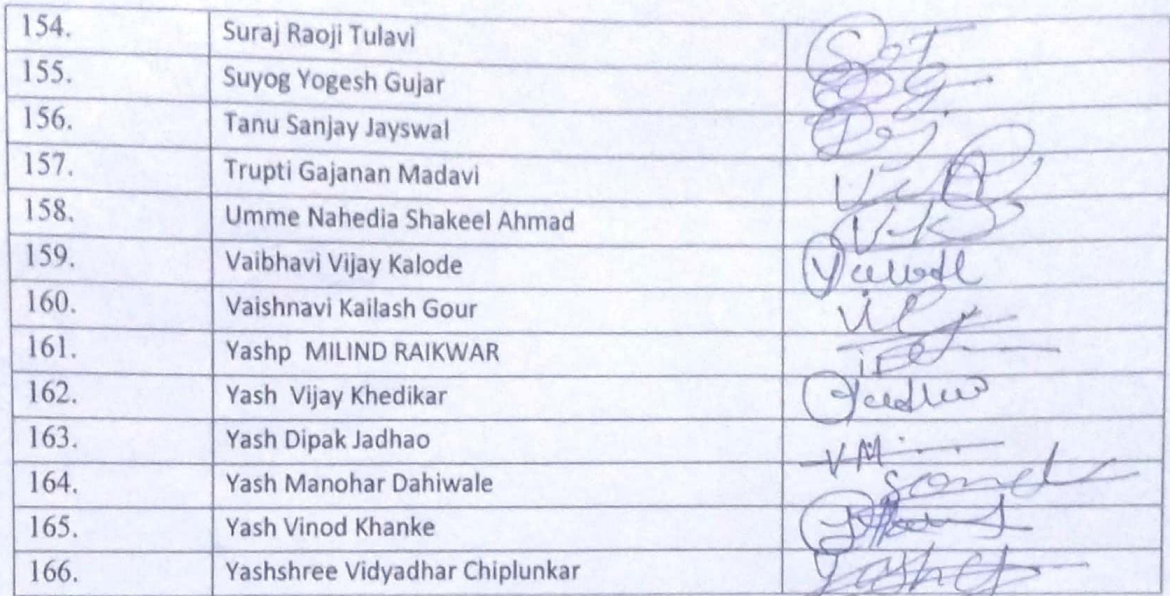 154. Suraj Raoji Tulavi
155. Suyog Yogesh Gujar
156. Tanu Sanjay Jayswal
157. Trupti Gajanan Madavi
158. Umme Nahedia Shakeel Ahmad
159. Vaibhavi Vijay Kalode
160. Vaishnavi Kailash Gour
161. Yashp MILIND RAIKWAR
162. Yash Vijay Khedikar
163. Yash Dipak Jadhao
164. Yash Manohar Dahiwale
165. Yash Vinod Khanke
166. Yashshree Vidyadhar Chiplunkar